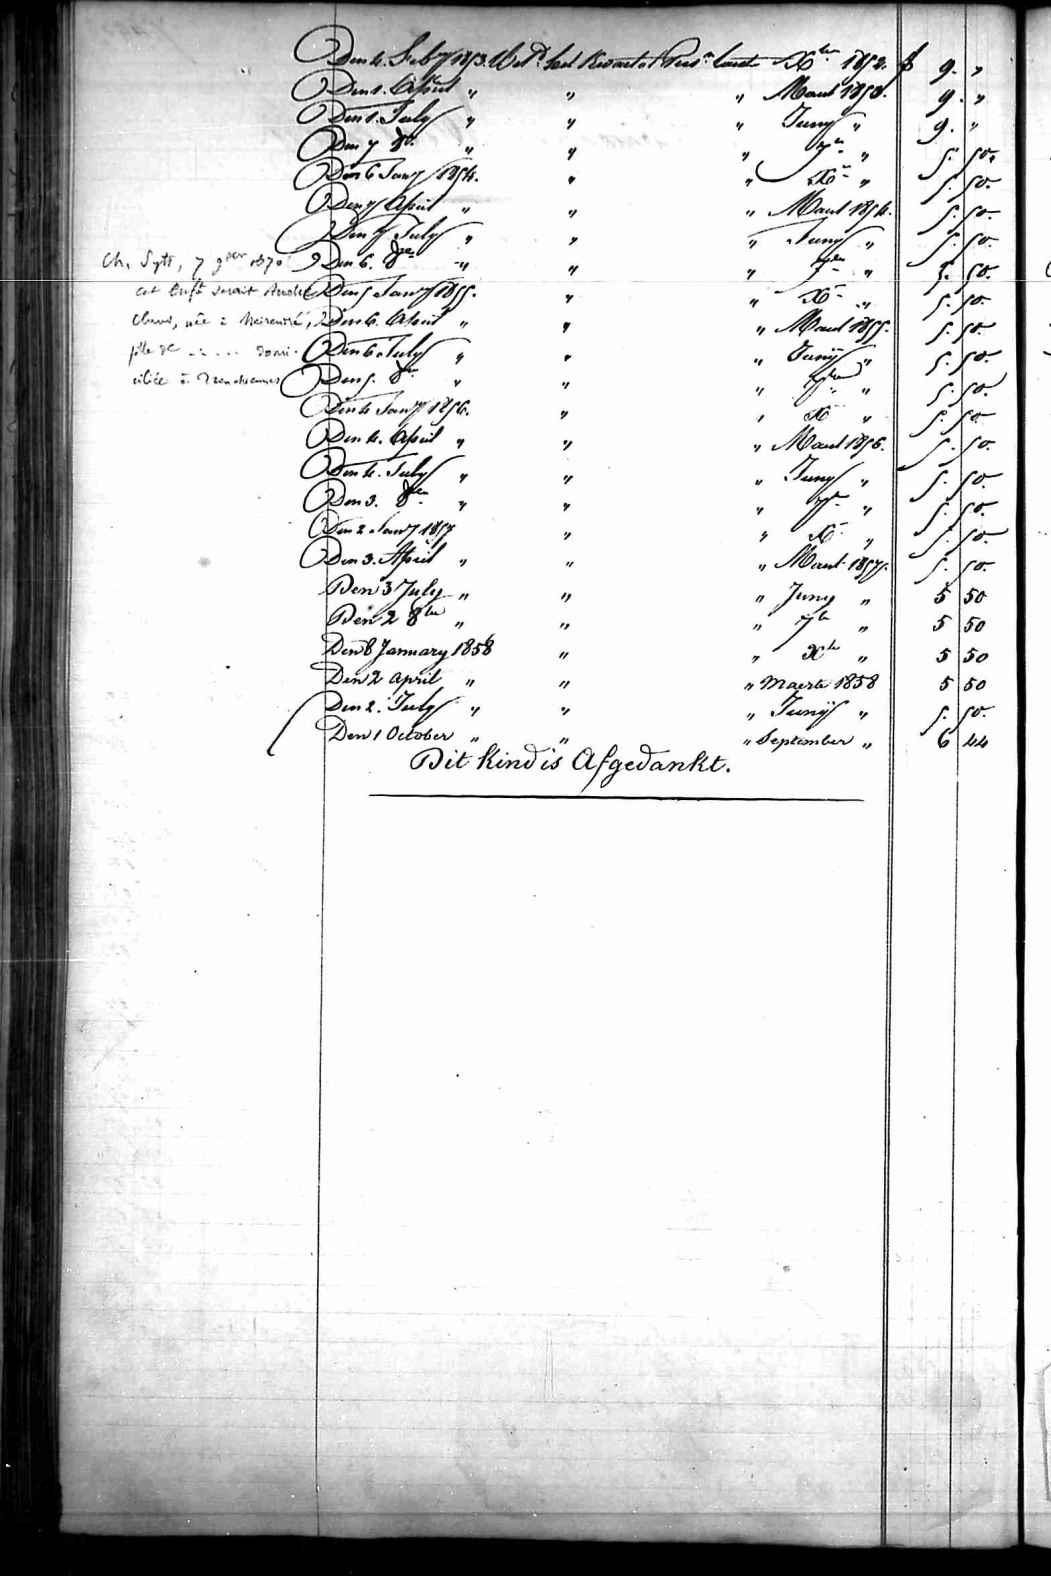 Den 4. Feb^y 1853. Bet^d het Kwartal Pens^n laast X^ber 1852. f 9. "
Den 1. April " " " Maart 1853. 9. "
Den 1. July " " " Juny " 9. "
Den 7 8^re " " " 7^re " 5. 50.
Den 6 Jan^y 1854. " " X^re " 5. 50.
Den 7 April " " " Maart 1854. 5. 50.
Den 7 July " " " Juny " 5. 50.
Den 6. 8^re " " " 7^bre " 5. 50.
Den 5 Jan^y 1855. " " X^re " 5. 50.
Den 6. April " " " Maart 1855. 5. 50.
Den 6 July " " " Junij " 5. 50.
Den 5. 8^re " " " 7^bre " 5. 50.
Den 4 Jan^y 1856. " " X^re " 5. 50.
Den 4. April " " " Maart 1856. 5. 50.
Den 4. July " " " Juny " 5. 50.
Den 3. 8^re " " " 7^re " 5. 50.
Den 2 Jan^y 1857 " " X^re " 5. 50.
Den 3. April " " " Maart 1857. 5. 50.
Den 3 July " " " Juny " 5 50
Den 2 8^bre " " " 7^br " 5 50
Den 8 January 1858 " " X^br " 5 50
Den 2 april " " " Maerte 1858 5 50
Den 2. July " " " Junij " 5. 50.
Den 1 October " " " September " 6 44
Dit kind is Afgedankt.
Ch. 7 9^bre 1870
cet Enf^t serait
née à
fille de ..... domi-
ciliée à